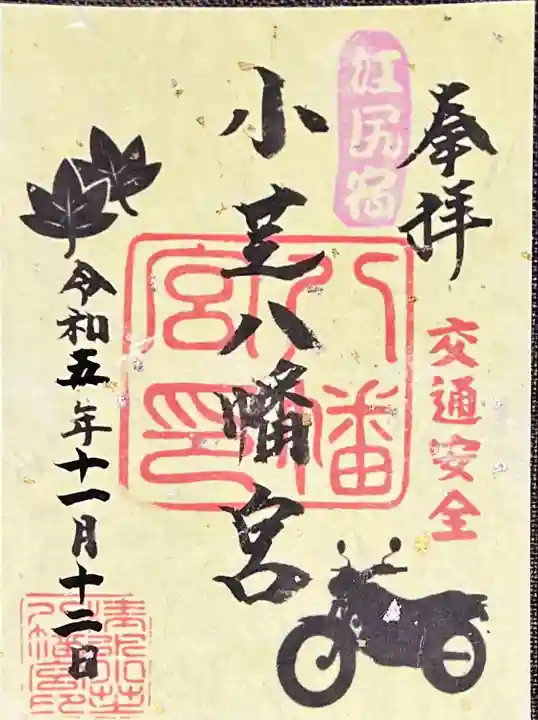 奉拝
交通安全
江尻宿
小芝八幡宮
八幡宮印
令和五年十一月十二日